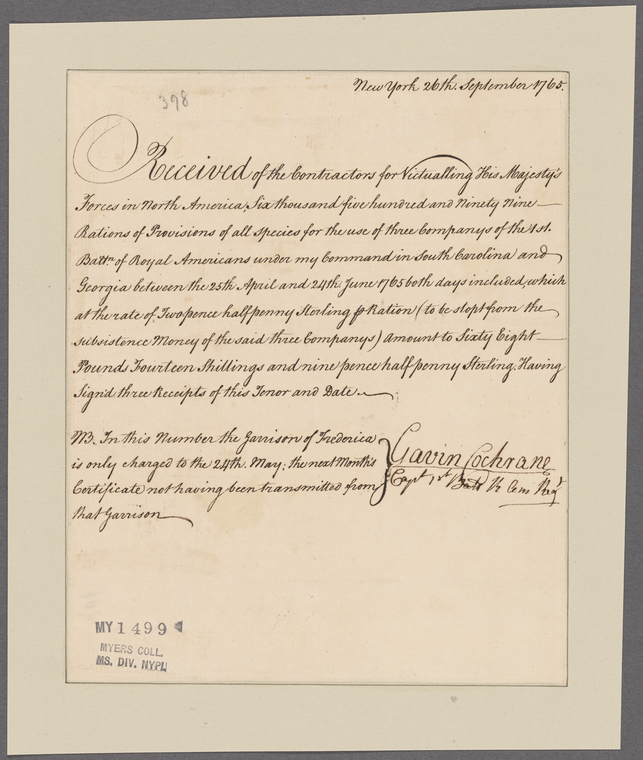 New York 26th. September 1765.
398
Received of the Contractors for Victualling His Majesty's
Forces in North America, Six thousand five hundred and Ninety Nine
Rations of Provisions of all species for the use of three Companys of the 1st.
Battn. of Royal Americans under my Command in South Carolina and
Georgia between the 25th April and 24th June 1765 both days included, which
at the rate of Twopence halfpenny Sterling ⅌ Ration (to be stopt from the
subsistence Money of the said three Companys) Amount to Sixty Eight
Pounds Fourteen Shillings and nine pence half penny Sterling. Having
Sign'd three Receipts of this Tenor and Date
NB. In this Number the Garrison of Frederica
is only charged to the 24th. May; the next Month's
Certificate not having been transmitted from
that Garrison
Gavin Cochrane
Capt 1st Batt R Am Regt
MY 1499
MYERS COLL.
MS. DIV. NYPL